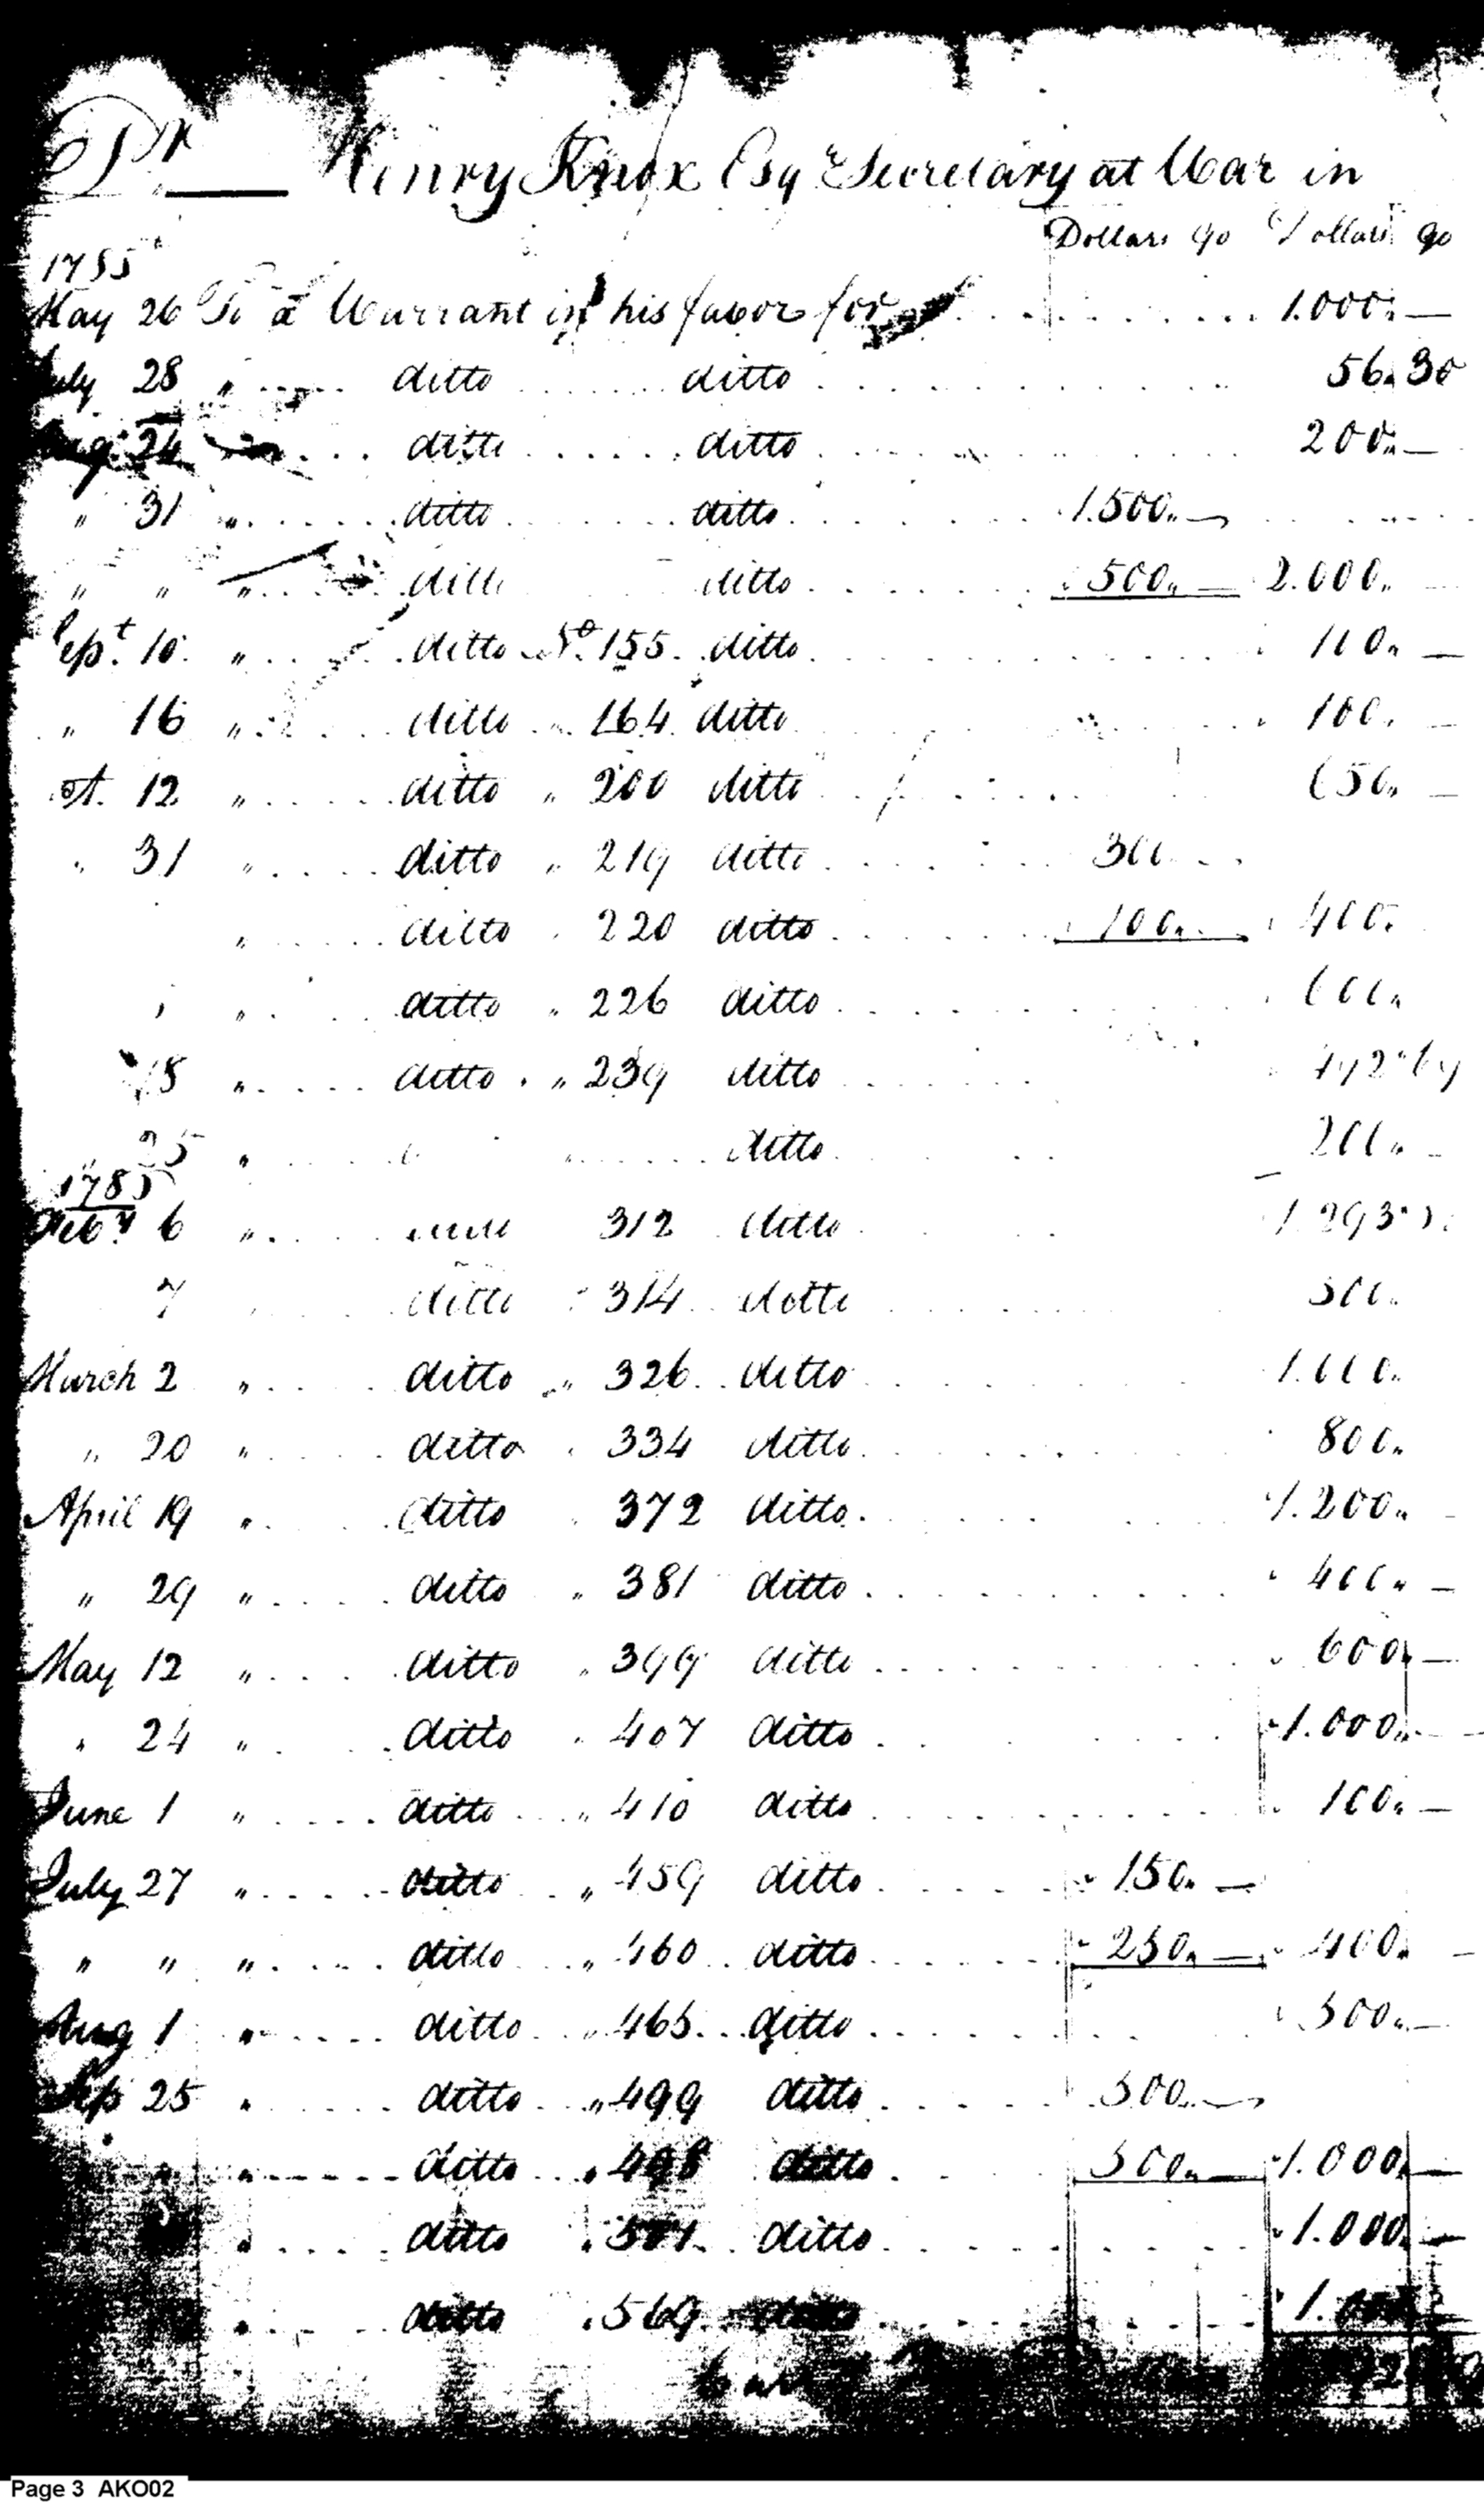 Dr Henry Knox Esqr Secretary at War in
Dollars 90 Dollars 90
1785
May 26 To a Warrant in his favor for 1.000 „ —
July 28 „ ditto ditto 56 „ 30
Aug. 24 ditto ditto 200 „ —
„ 31 „ ditto ditto 1.500 „ —
„ „ „ ditto ditto 500 „ — 2.000 „ —
Sept. 10 „ ditto No. 155 ditto 100 „ —
„ 16 „ ditto „ 164 ditto 100 „ —
Oct. 12 „ ditto „ 200 ditto „ —
„ 31 „ ditto „ 219 ditto 300
„ ditto „ 220 ditto 100 „ 400 „
„ „ ditto „ 226 ditto
18 „ ditto „ 239 ditto
25 „ ditto 200 „ —
1785
Feby 6 „ 312 ditto 1.293
7 ditto 314 ditto
March 2 „ ditto „ 326 ditto 1.000 „
„ 20 „ ditto „ 334 ditto 800 „
April 19 „ ditto 372 ditto 1.200 „ —
„ 29 „ ditto „ 381 ditto 400 „ —
May 12 „ ditto „ 399 ditto 600 „ —
„ 24 „ ditto „ 407 ditto 1.000 „ —
June 1 „ ditto „ 410 ditto 100 „ —
July 27 „ ditto „ 459 ditto 150 „ —
„ „ „ ditto „ 460 ditto 250 „ — 400 „ —
Aug 1 „ ditto „ 465 ditto 500 „ —
Sep 25 „ ditto „ 499 ditto 500 „ —
„ „ ditto „ 498 ditto 500 „ — 1.000 „ —
„ ditto „ ditto 1.000 „ —
„ ditto „ 569 ditto
Page 3 AKO02